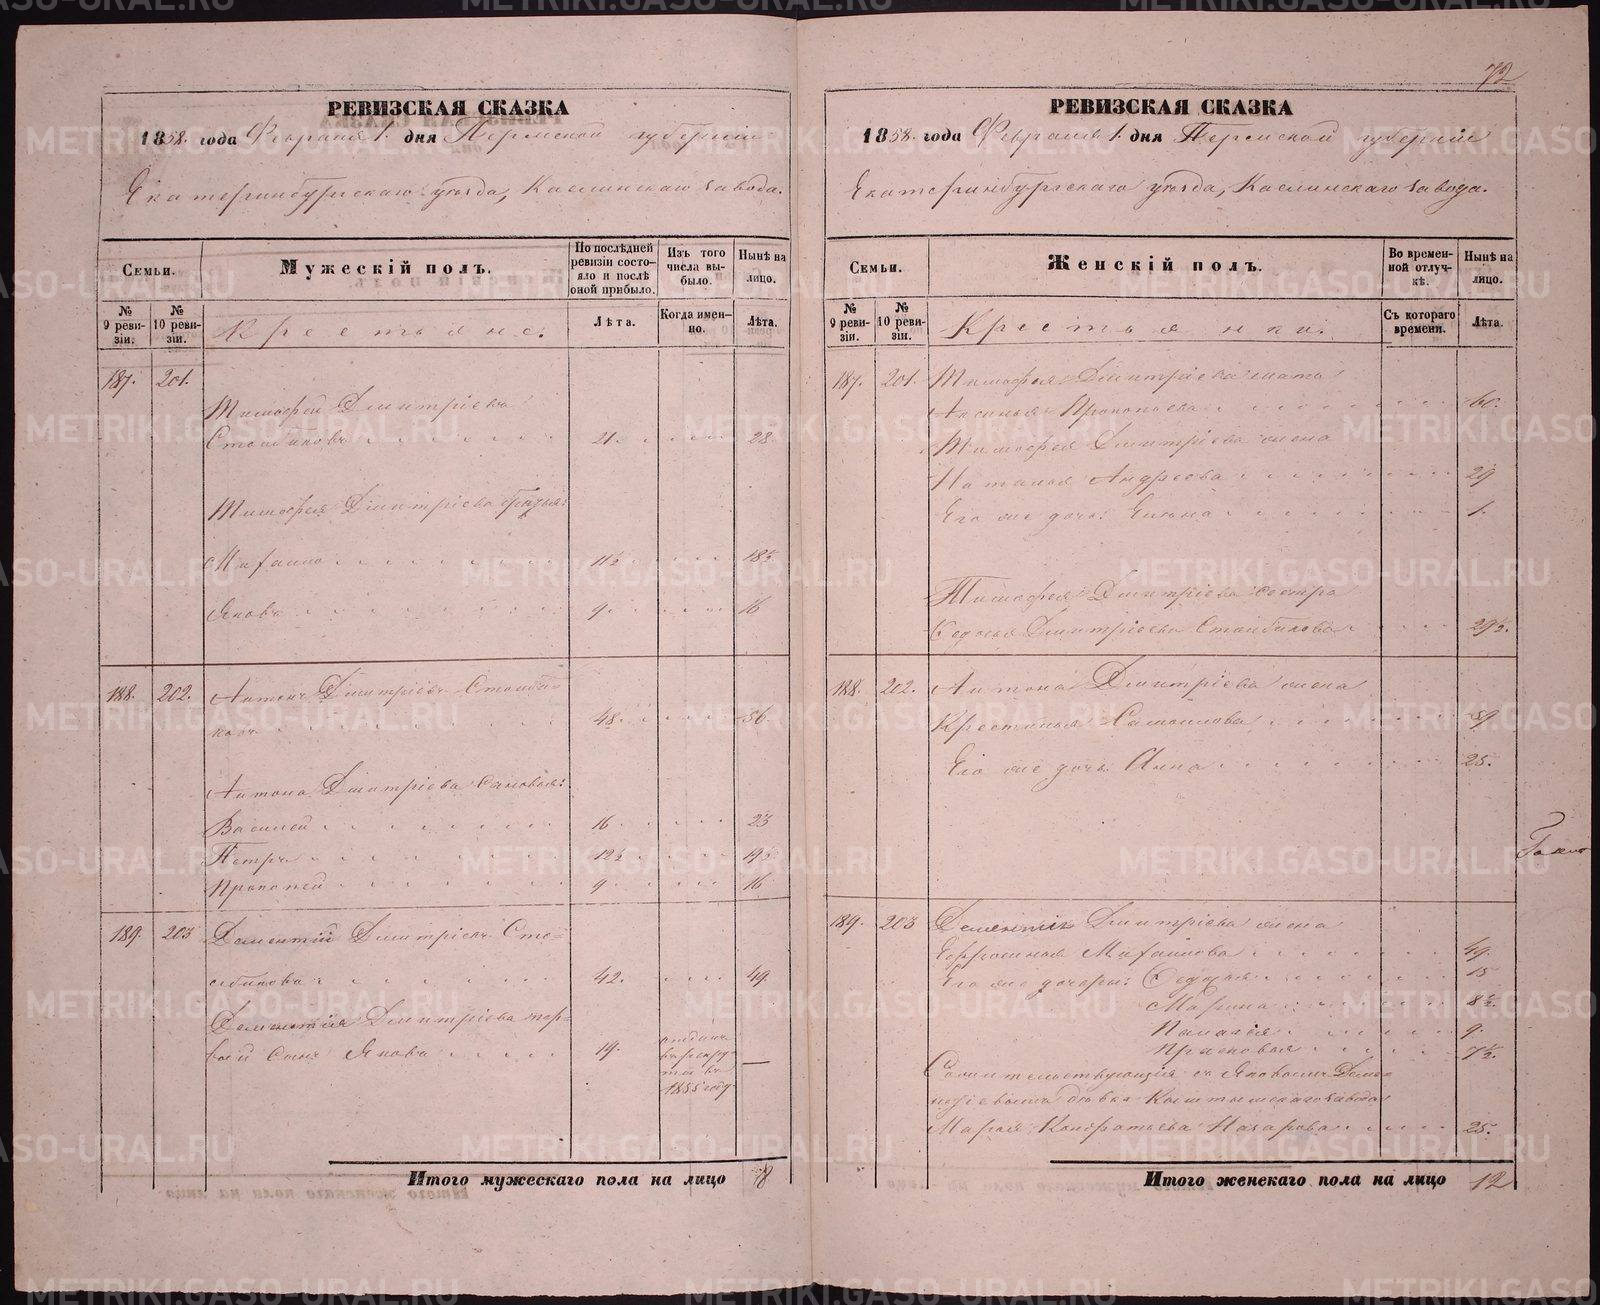 РЕВИЗСКАЯ СКАЗКА
1858. года Февраля 1. дня Пермской губерніи
Екатеринбургскаго уѣзда, Каслинскаго завода.
Семьи.
Мужескій полъ.
По послѣдней ревизіи состояло и послѣ оной прибыло.
Изъ того числа выбыло.
Нынѣ на лицо.
№ 9 ревизіи.
№ 10 ревизіи.
Крестьяне.
Лѣта.
Когда именно.
Лѣта.
187. 201.
Тимофей Дмитріевъ
21. 28
Тимофея Дмитріева братья:
Михайло 11½ 18½
Яковъ 9. 16
188. 202. Антонъ Дмитріевъ
48. 56
Антона Дмитріева сыновья:
Василей 16 23
Петръ 12½ 19½
Прокопей 9 16
189. 203 Дементій Дмитріевъ
42. 49
Дементія Дмитріева пер-
вой сынъ Яковъ 19. отданъ въ рекруты въ 1855 году —
Итого мужескаго пола на лицо 8
72
РЕВИЗСКАЯ СКАЗКА
1858. года Февраля 1. дня Пермской губерніи
Екатеринбургскаго уѣзда, Каслинскаго завода.
Семьи.
Женскій полъ.
Во временной отлучкѣ.
Нынѣ на лицо.
№ 9 ревизіи.
№ 10 ревизіи.
Крестьянки.
Съ котораго времени.
Лѣта.
187. 201. Тимофея Дмитріева мать
Аксинья Прокопьева 60.
Тимофея Дмитріева жена
Наталья Андреева 29
Его же дочь: 1.
Тимофея Дмитріева сестра
Федосья Дмитріева 29½.
188. 202. Антона Дмитріева жена
Крестинья Самоилова 59
Его же дочь Анна 25.
189. 203 Дементія Дмитріева жена
Ефросинья Михайлова 49.
Его же дочери: Федосья 15
Марина 8½.
Палагея 9.
Прасковья 7½.
Сожительствующая съ Яковомъ Демен-
тьевымъ дѣвка Кыштымскаго завода
Марья Кондратьева Назарова 25.
Итого женскаго пола на лицо 12